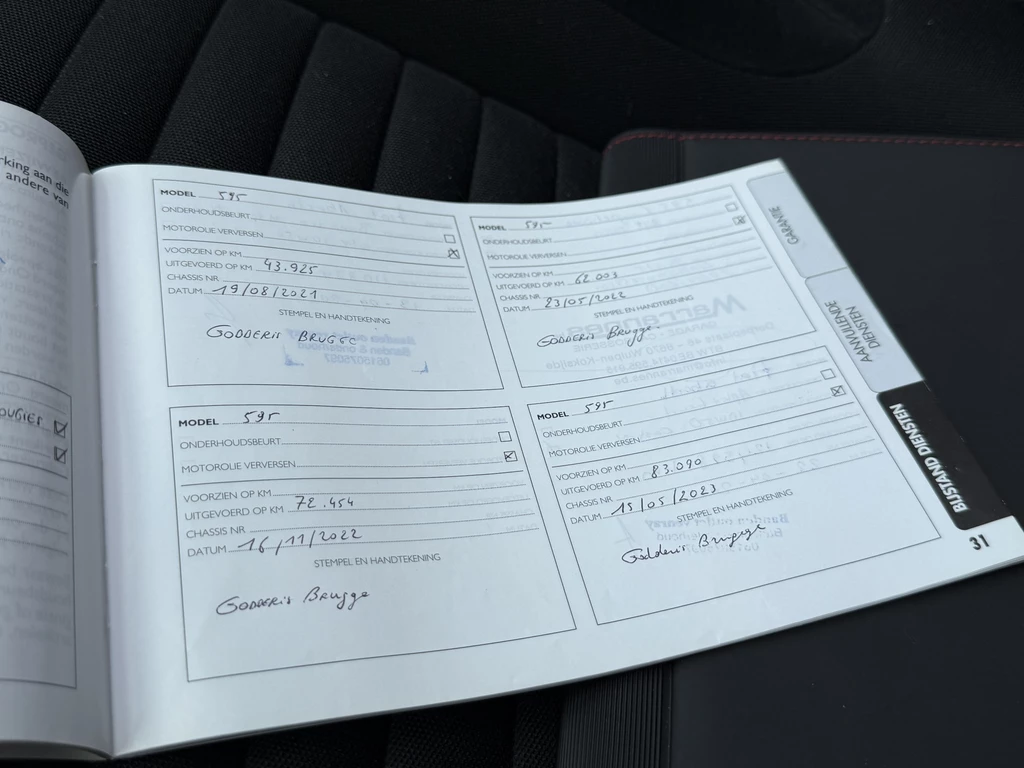 rking aan die
andere van
MODEL 595
ONDERHOUDSBEURT
MOTOROLIE VERVERSEN
VOORZIEN OP KM
UITGEVOERD OP KM 43.925
CHASSIS NR.
DATUM 19/08/2021
STEMPEL EN HANDTEKENING
GODDERIS BRUGGE
MODEL 595
ONDERHOUDSBEURT
MOTOROLIE VERVERSEN
VOORZIEN OP KM
UITGEVOERD OP KM 62.003
CHASSIS NR.
DATUM 23/05/2022
STEMPEL EN HANDTEKENING
GODDERIS Brugge.
MODEL 595
ONDERHOUDSBEURT
MOTOROLIE VERVERSEN
VOORZIEN OP KM
UITGEVOERD OP KM 72.454
CHASSIS NR.
DATUM 16/11/2022
STEMPEL EN HANDTEKENING
GODDERIS Brugge
MODEL 595
ONDERHOUDSBEURT
MOTOROLIE VERVERSEN
VOORZIEN OP KM
UITGEVOERD OP KM 83.090
CHASSIS NR.
DATUM 15/05/2023
STEMPEL EN HANDTEKENING
Godderis Bruggge
GARANTIE
AANVULLENDE
DIENSTEN
BIJSTAND DIENSTEN
31